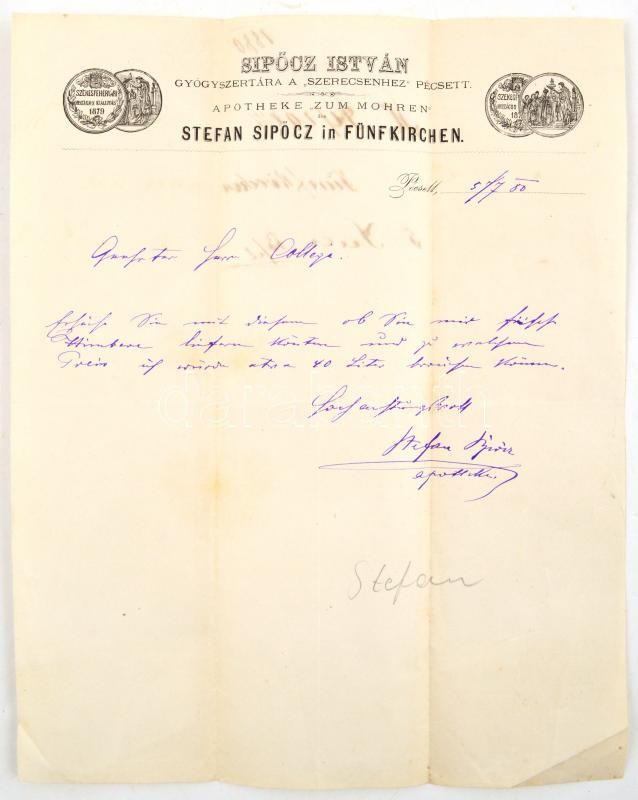 SIPŐCZ ISTVÁN
GYÓGYSZERTÁRA A „SZERECSENHEZ" PÉCSETT.
APOTHEKE „ZUM MOHREN"
des
STEFAN SIPŐCZ in FÜNFKIRCHEN.
SZÉKESFEHÉRVÁRI
ORSZÁGOS KIÁLLÍTÁS
1879
Pécsett, 5/7 80
Geehrter Herr College.
Ersuche Sie mit diesem ob Sie mir frische
Himbere liefern könten und zu welchem
Preis ich würde etwa 40 Liter brauchen können.
Hochachtungsvoll
Stefan Sipőcz
Stefan
darabanth